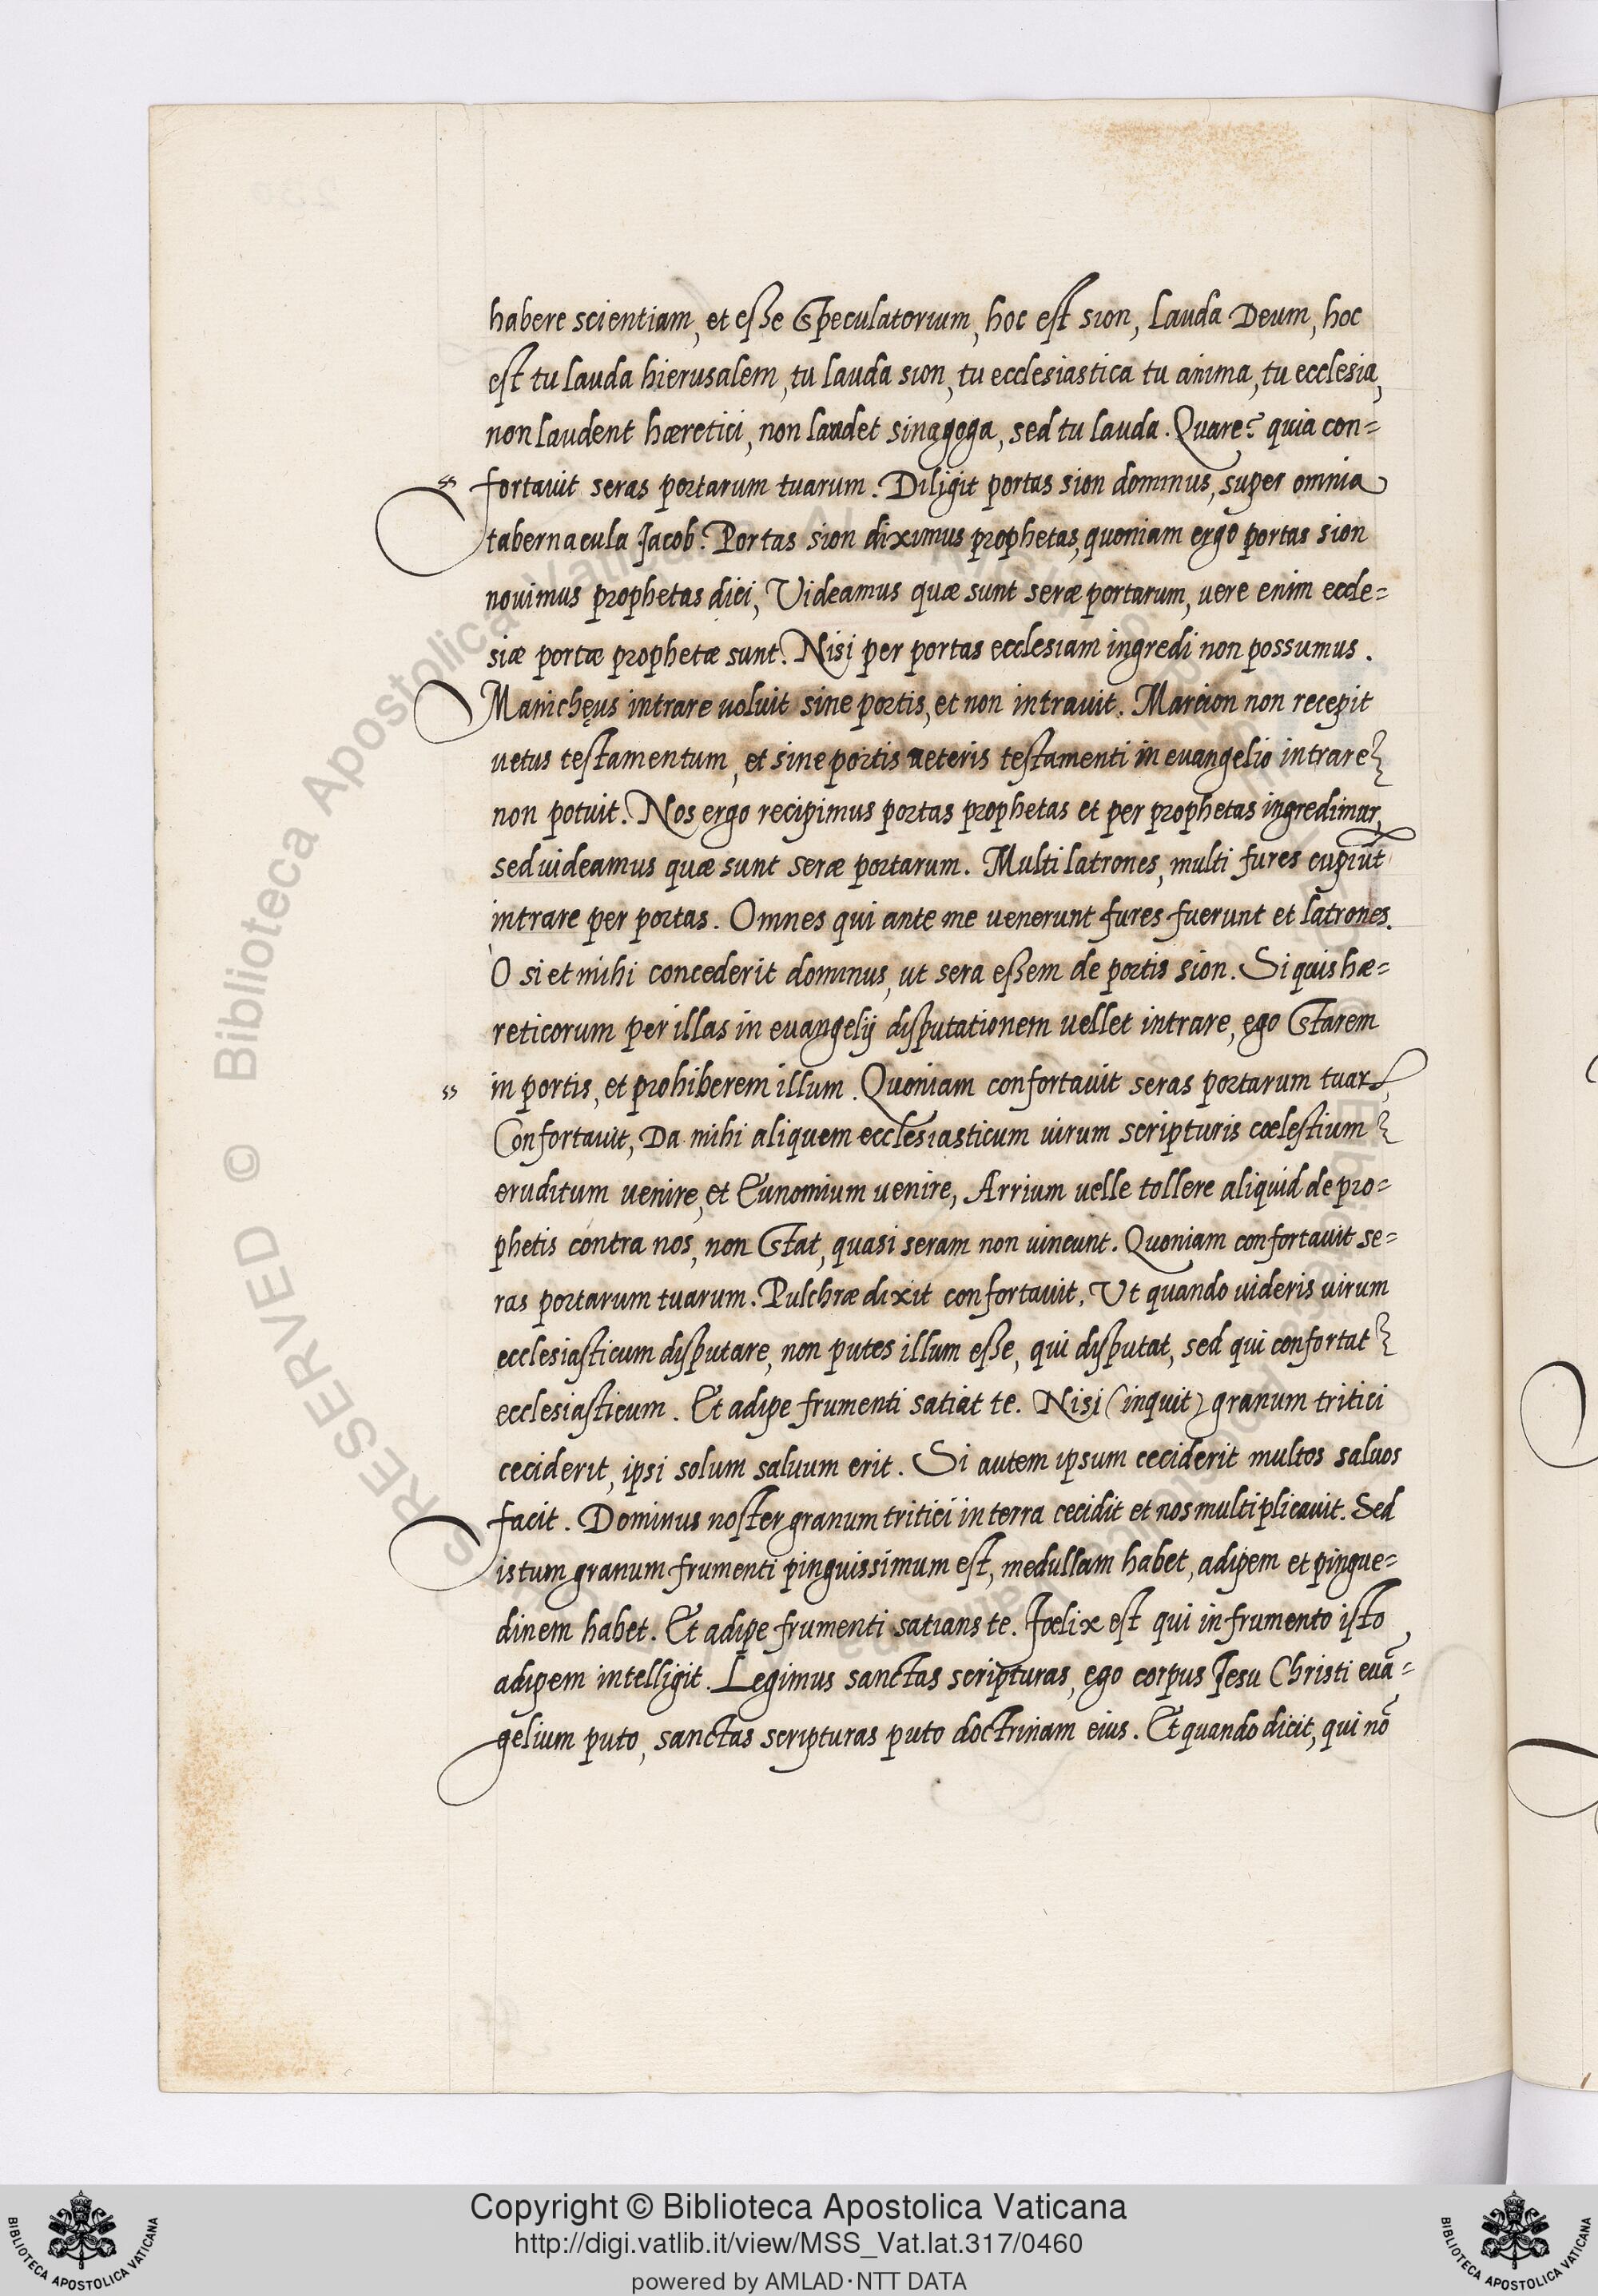 habere scientiam, et esse speculatorium, hoc est sion, Lauda Deum, hoc
est tu lauda hierusalem, tu lauda sion, tu ecclesiastica tu anima, tu ecclesia,
non laudent hæretici, non laudet sinagoga, sed tu lauda. Quare? quia con=
fortavit seras portarum tuarum. Diligit portas sion dominus, super omnia
tabernacula Jacob. Portas sion diximus prophetas, quoniam ergo portas sion
novimus prophetas dici, Videamus quæ sunt seræ portarum, vere enim eccle=
siæ portæ prophetæ sunt. Nisi per portas ecclesiam ingredi non possumus.
Manichęus intrare voluit sine portis, et non intravit. Marcion non recepit
vetus testamentum, et sine portis veteris testamenti in evangelio intrare
non potuit. Nos ergo recipimus portas prophetas et per prophetas ingredimur,
sed videamus quæ sunt seræ portarum. Multi latrones, multi fures cupiũt
intrare per portas. Omnes qui ante me venerunt fures fuerunt et latrones.
O si et mihi concederit dominus, ut sera essem de portis sion. Si quis hæ=
reticorum per illas in evangelij disputationem vellet intrare, ego starem
in portis, et prohiberem illum. Quoniam confortavit seras portarum tuarꝝ,
Confortavit, Da mihi aliquem ecclesiasticum virum scripturis cœlestium
eruditum venire, et Eunomium venire, Arrium velle tollere aliquid de pro=
phetis contra nos, non stat, quasi seram non vincunt. Quoniam confortavit se=
ras portarum tuarum. Pulchræ dixit confortavit. Ut quando videris virum
ecclesiasticum disputare, non putes illum esse, qui disputat, sed qui confortat
ecclesiasticum. Et adipe frumenti satiat te. Nisi (inquit) granum tritici
ceciderit, ipsi solum salvum erit. Si autem ipsum ceciderit multos salvos
facit. Dominus noster granum tritici in terra cecidit et nos multiplicavit. Sed
istum granum frumenti pinguissimum est, medullam habet, adipem et pingue=
dinem habet. Et adipe frumenti satians te. Fœlix est qui in frumento isto
adipem intelligit. Legimus sanctas scripturas, ego corpus Jesu Christi euã=
gelium puto, sanctas scripturas puto doctrinam eius. Et quando dicit, qui nõ
Copyright © Biblioteca Apostolica Vaticana
http://digi.vatlib.it/view/MSS_Vat.lat.317/0460
powered by AMLAD·NTT DATA
BIBLIOTECA APOSTOLICA VATICANA
BIBLIOTECA APOSTOLICA VATICANA